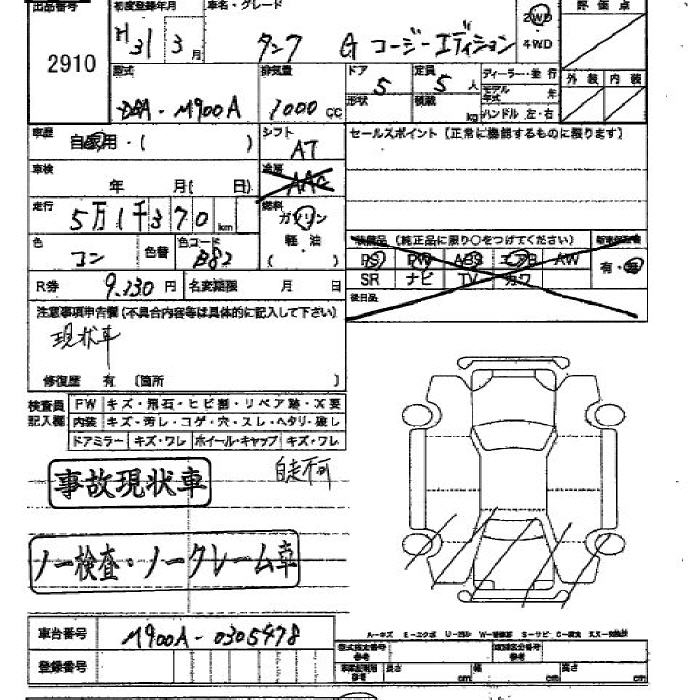 出品番号 初度登録年月 車名・グレード 2WD 評価点
2910 H31 3月 タンク G コージーエディション 4WD
型式 排気量 ドア 定員 ディーラー・並行 外装 内装
DBA-M900A 1000cc 5 5人 モデル年式 年
形状 積載 kg ハンドル 左・右
車歴 自家用・( ) シフト AT セールスポイント(正常に機能するものに限ります)
車検 年 月( 日) 冷房 AAC
走行 5万1千370km 燃料 ガソリン
軽・油
( )
色 コン 色替 色コード B82 装備品(純正品に限り○をつけてください)
PS PW ABS エアB AW 有・無
R券 9,230円 名変期限 月 日 SR ナビ TV カワ
後日品
注意事項申告欄(不具合内容等は具体的に記入して下さい)
現状車
修復歴 有 〔箇所 〕
検査員記入欄 FW キズ・飛石・ヒビ割・リペア跡・X要
内装 キズ・汚レ・コゲ・穴・スレ・ヘタリ・破し
ドアミラー キズ・ワレ ホイール・キャップ キズ・ワレ
自走不可
事故現状車
ノー検査・ノークレーム車
車台番号 M900A-0305478
A-キズ E-エクボ
登録番号 型式指定番号 類別区分番号
長さ cm 幅 cm 高さ cm